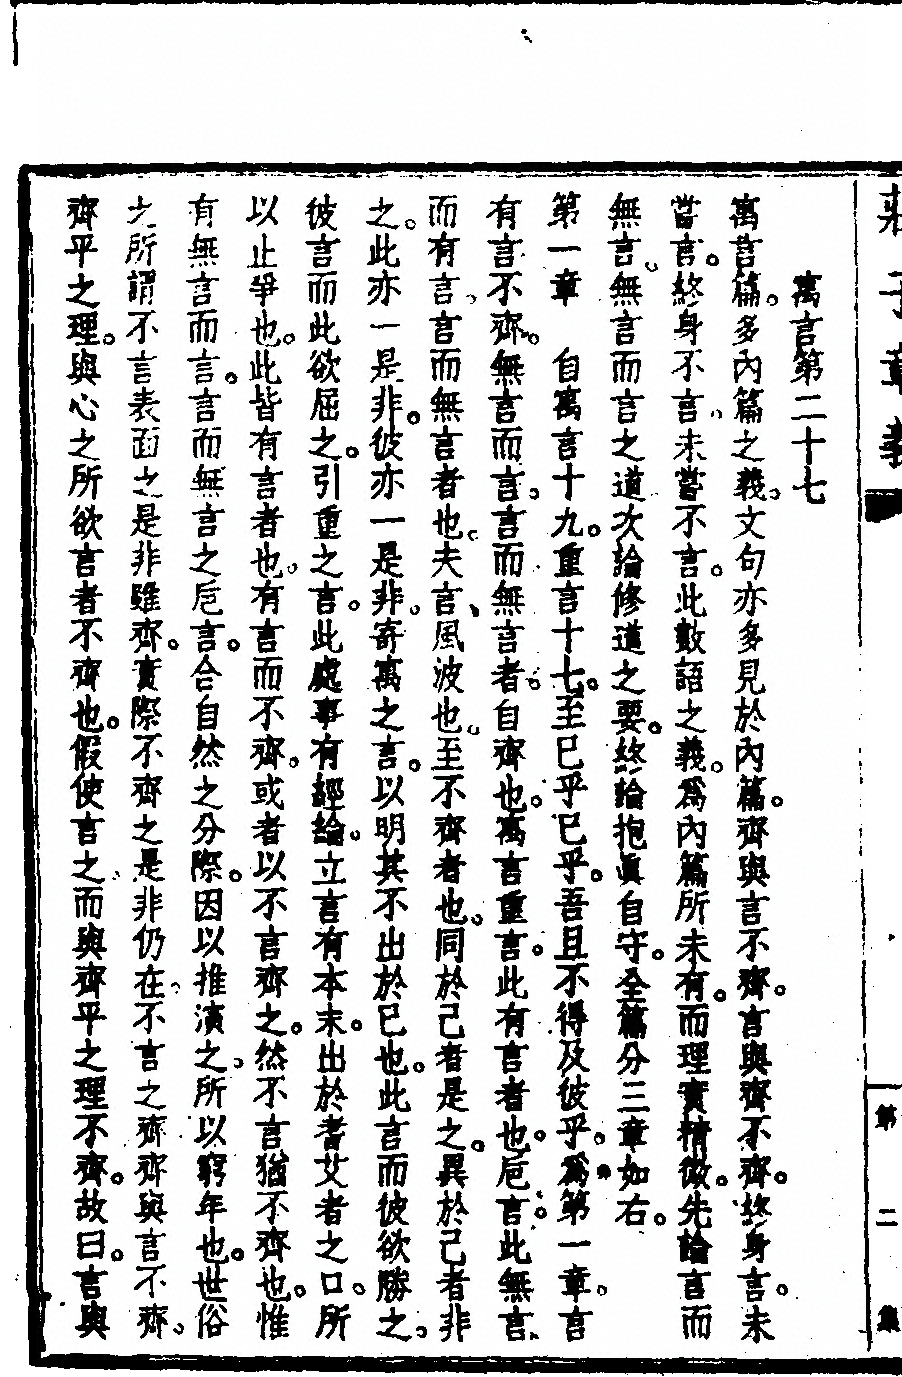 莊子章義
第二集
寓言第二十七
寓言篇。多內篇之義。文句亦多見於內篇。齊與言不齊。言與齊不齊。終身言。未
嘗言。終身不言、未嘗不言。此數語之義。爲內篇所未有。而理實精微。先論言而
無言、無言而言之道次論修道之要。終論抱眞自守。全篇分三章如右。
第一章　自寓言十九。重言十七。至已乎已乎。吾且不得及彼乎。爲第一章。言
有言不齊。無言而言。言而無言者。自齊也。寓言重言。此有言者也。巵言。此無言
而有言、言而無言者也。夫言、風波也。至不齊者也。同於己者是之。異於己者非
之。此亦一是非。彼亦一是非。寄寓之言。以明其不出於已也。此言而彼欲勝之。
彼言而此欲屈之。引重之言。此處事有經論。立言有本末。出於耆艾者之口。所
以止爭也。此皆有言者也。有言而不齊。或者以不言齊之。然不言猶不齊也。惟
有無言而言。言而無言之巵言。合自然之分際。因以推演之。所以窮年也。世俗
之所謂不言表面之是非雖齊。實際不齊之是非仍在。不言之齊齊與言不齊。
齊平之理。與心之所欲言者不齊也。假使言之、而與齊平之理不齊。故曰。言與